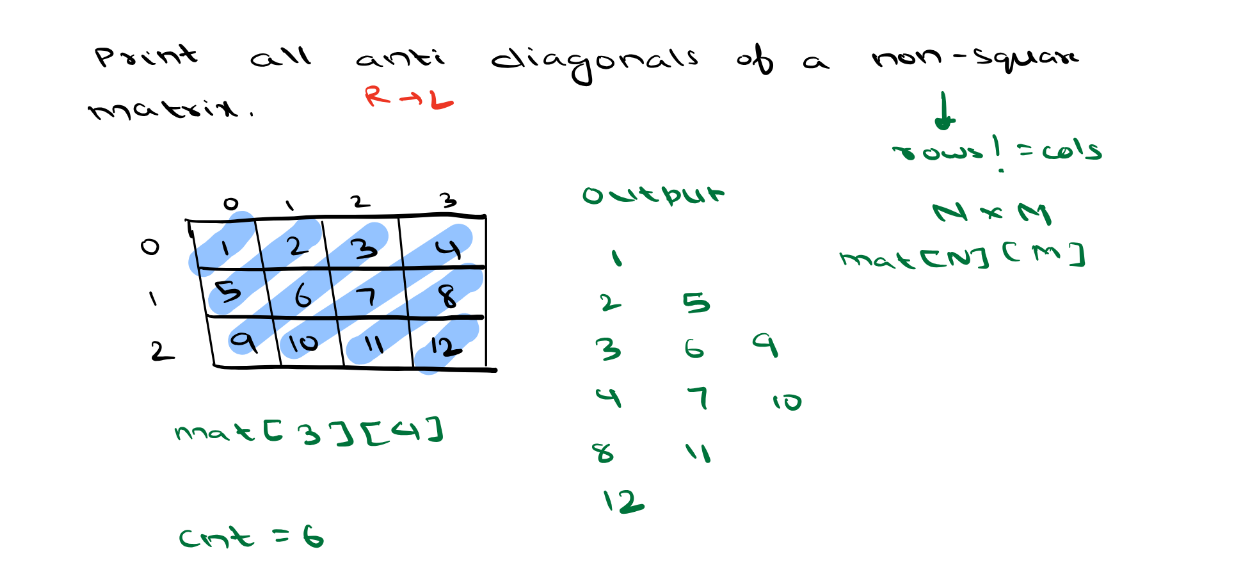 Print all anti diagonals of a non-square
matrix. R → L
rows! = cols
output
N x M
mat[N][M]
0 1 2 3
0 1 2 3 4
1 5 6 7 8
2 9 10 11 12
1
2 5
3 6 9
4 7 10
8 11
12
mat[3][4]
cnt = 6